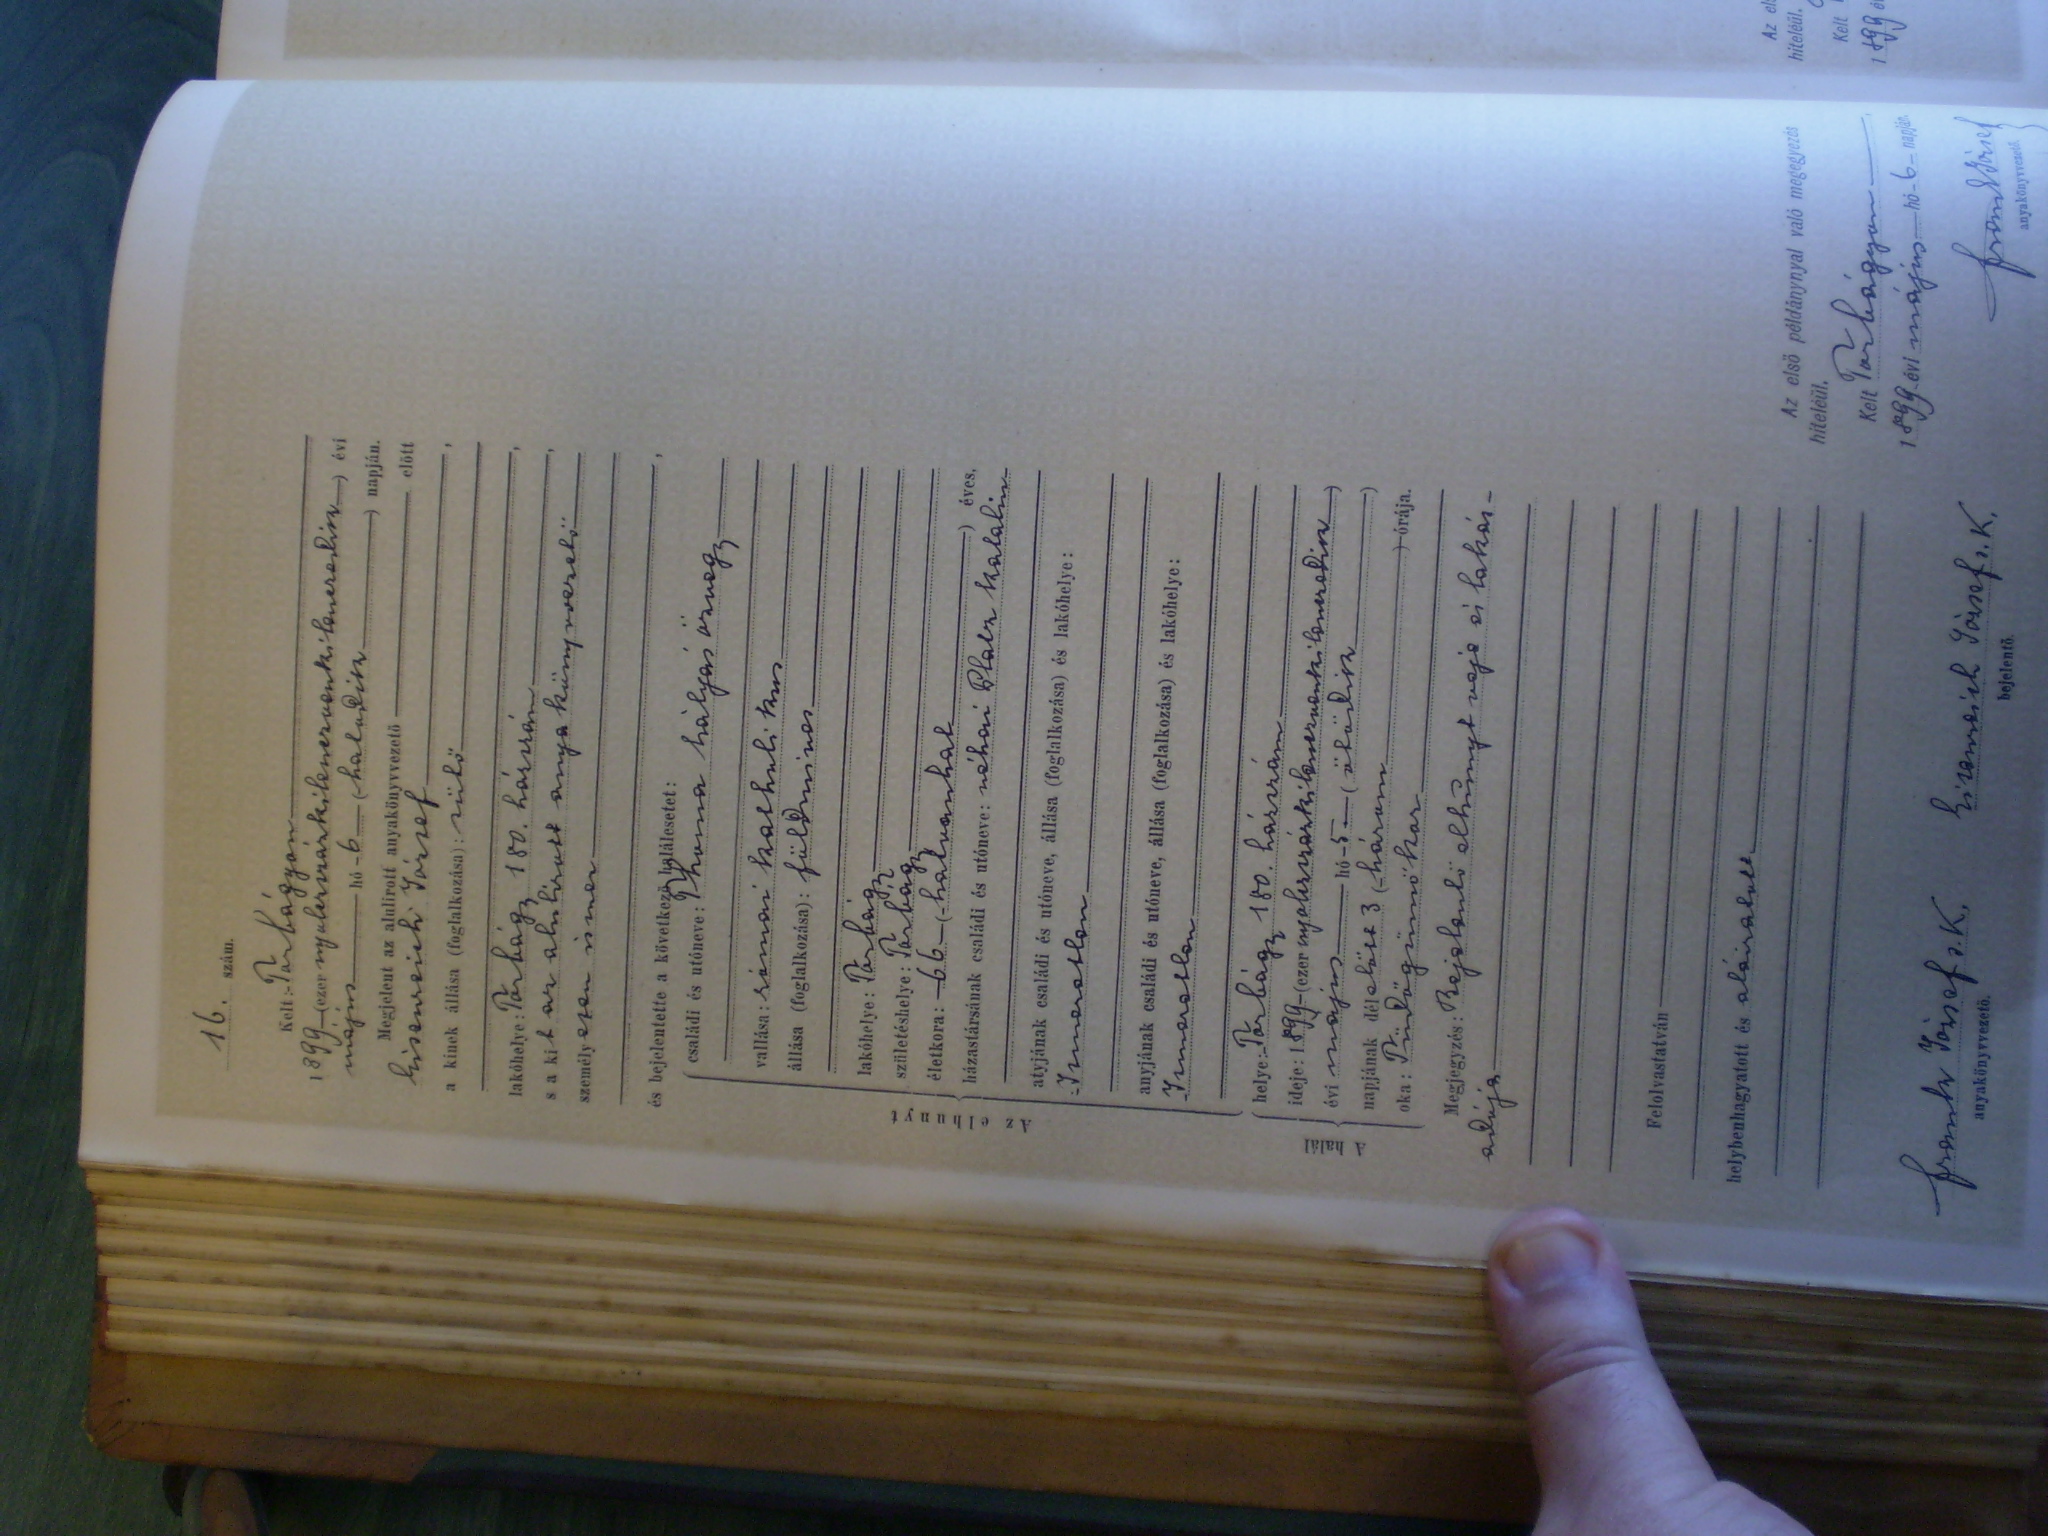 16. szám.
Kelt: Torbágyon
1899 (ezernyolcszázkilencvenkilencedik) évi
május hó 6 (hatodik) napján.
Megjelent az alulirott anyakönyvvezető előtt
József,
a kinek állása (foglalkozása): sütő
lakóhelye: Torbágy 180. házszám,
s a kit az alulirott anyakönyvvezető
személyesen ismer,
és bejelentette a következő halálesetet:
Az elhunyt
családi és utóneve: Thoma özvegy
vallása: római katholikus
állása (foglalkozása): földmives
lakóhelye: Torbágy
születéshelye: Torbágy
életkora: 66 (hatvanhat) éves,
házastársának családi és utóneve: néhai Katalin
atyjának családi és utóneve, állása (foglalkozása) és lakóhelye:
Ismeretlen
anyjának családi és utóneve, állása (foglalkozása) és lakóhelye:
Ismeretlen
A halál
helye: Torbágy 180. házszám
ideje: 1899 (ezernyolcszázkilencvenkilencedik)
évi május hó 5 (ötödik)
napjának délelőtt 3 (három) órája.
oka: Tüdőgümőkor
Megjegyzés: Bejelentő elhunyt veje és lakás-
adója
Felolvastatván
helybenhagyatott és aláiratott.
Frank József s.k.
anyakönyvvezető.
József s.k.
bejelentő.
Az első példánynyal való megegyezés
hiteléül.
Kelt Torbágyon,
1899 évi május hó 6 napján.
Frank József
anyakönyvvezető.
hiteléül.
Kelt
1899